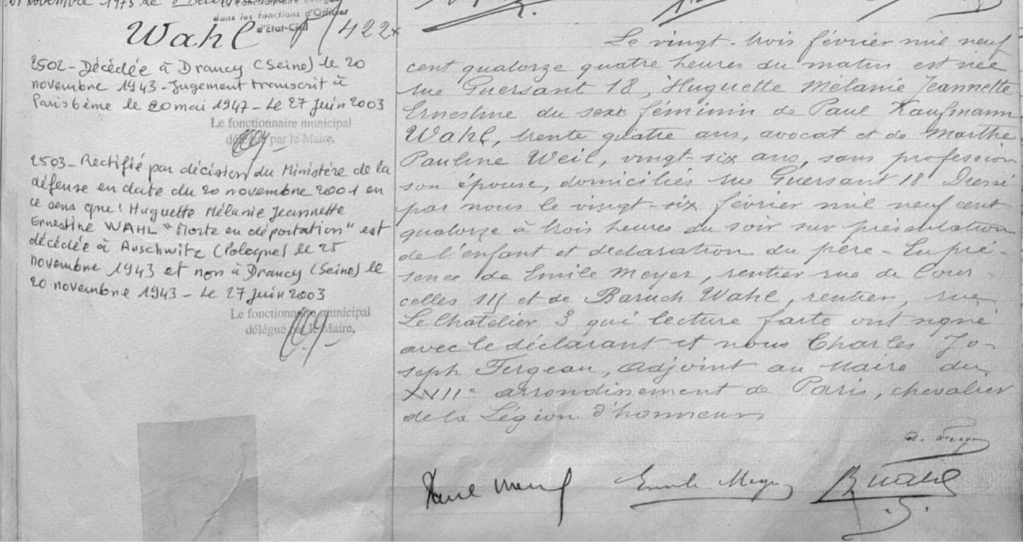 novembre 1973
fonctionnaire
dans les fonctions d'Officier
d'Etat-Civil
Wahl
422
2502 - Décédée à Drancy (Seine) le 20
novembre 1943 - Jugement transcrit à
Paris 6ème le 20 mai 1947 - Le 27 juin 2003
Le fonctionnaire municipal
délégué par le Maire,
2503 - Rectifié par décision du Ministère de la
défense en date du 20 novembre 2001 en
ce sens que : Huguette Mélanie Jeannette
Ernestine WAHL "Morte en déportation" est
décédée à Auschwitz (Pologne) le 25
novembre 1943 et non à Drancy (Seine) le
20 novembre 1943 - Le 27 juin 2003
Le fonctionnaire municipal
délégué par le Maire,
Le vingt-trois février mil neuf
cent quatorze quatre heures du matin est née
rue Guersant 18, Huguette Mélanie Jeannette
Ernestine du sexe féminin de Paul Kaufmann
Wahl, trente quatre ans, avocat et de Marthe
Pauline Weil, vingt-six ans, sans profession
son épouse, domiciliés rue Guersant 18 Dressé
par nous le vingt-six février mil neuf cent
quatorze à trois heures du soir sur présentation
de l'enfant et déclaration du père - En pré-
sence de Emile Meyer, rentier rue de Cour-
celles 114 et de Baruch Wahl, rentier, rue
Le Chatelier 3 qui lecture faite ont signé
avec le déclarant et nous Charles Jo-
seph Fergeau, adjoint au Maire du
XVIIe arrondissement de Paris, chevalier
de la Légion d'honneur
Emile Meyer
B Wahl